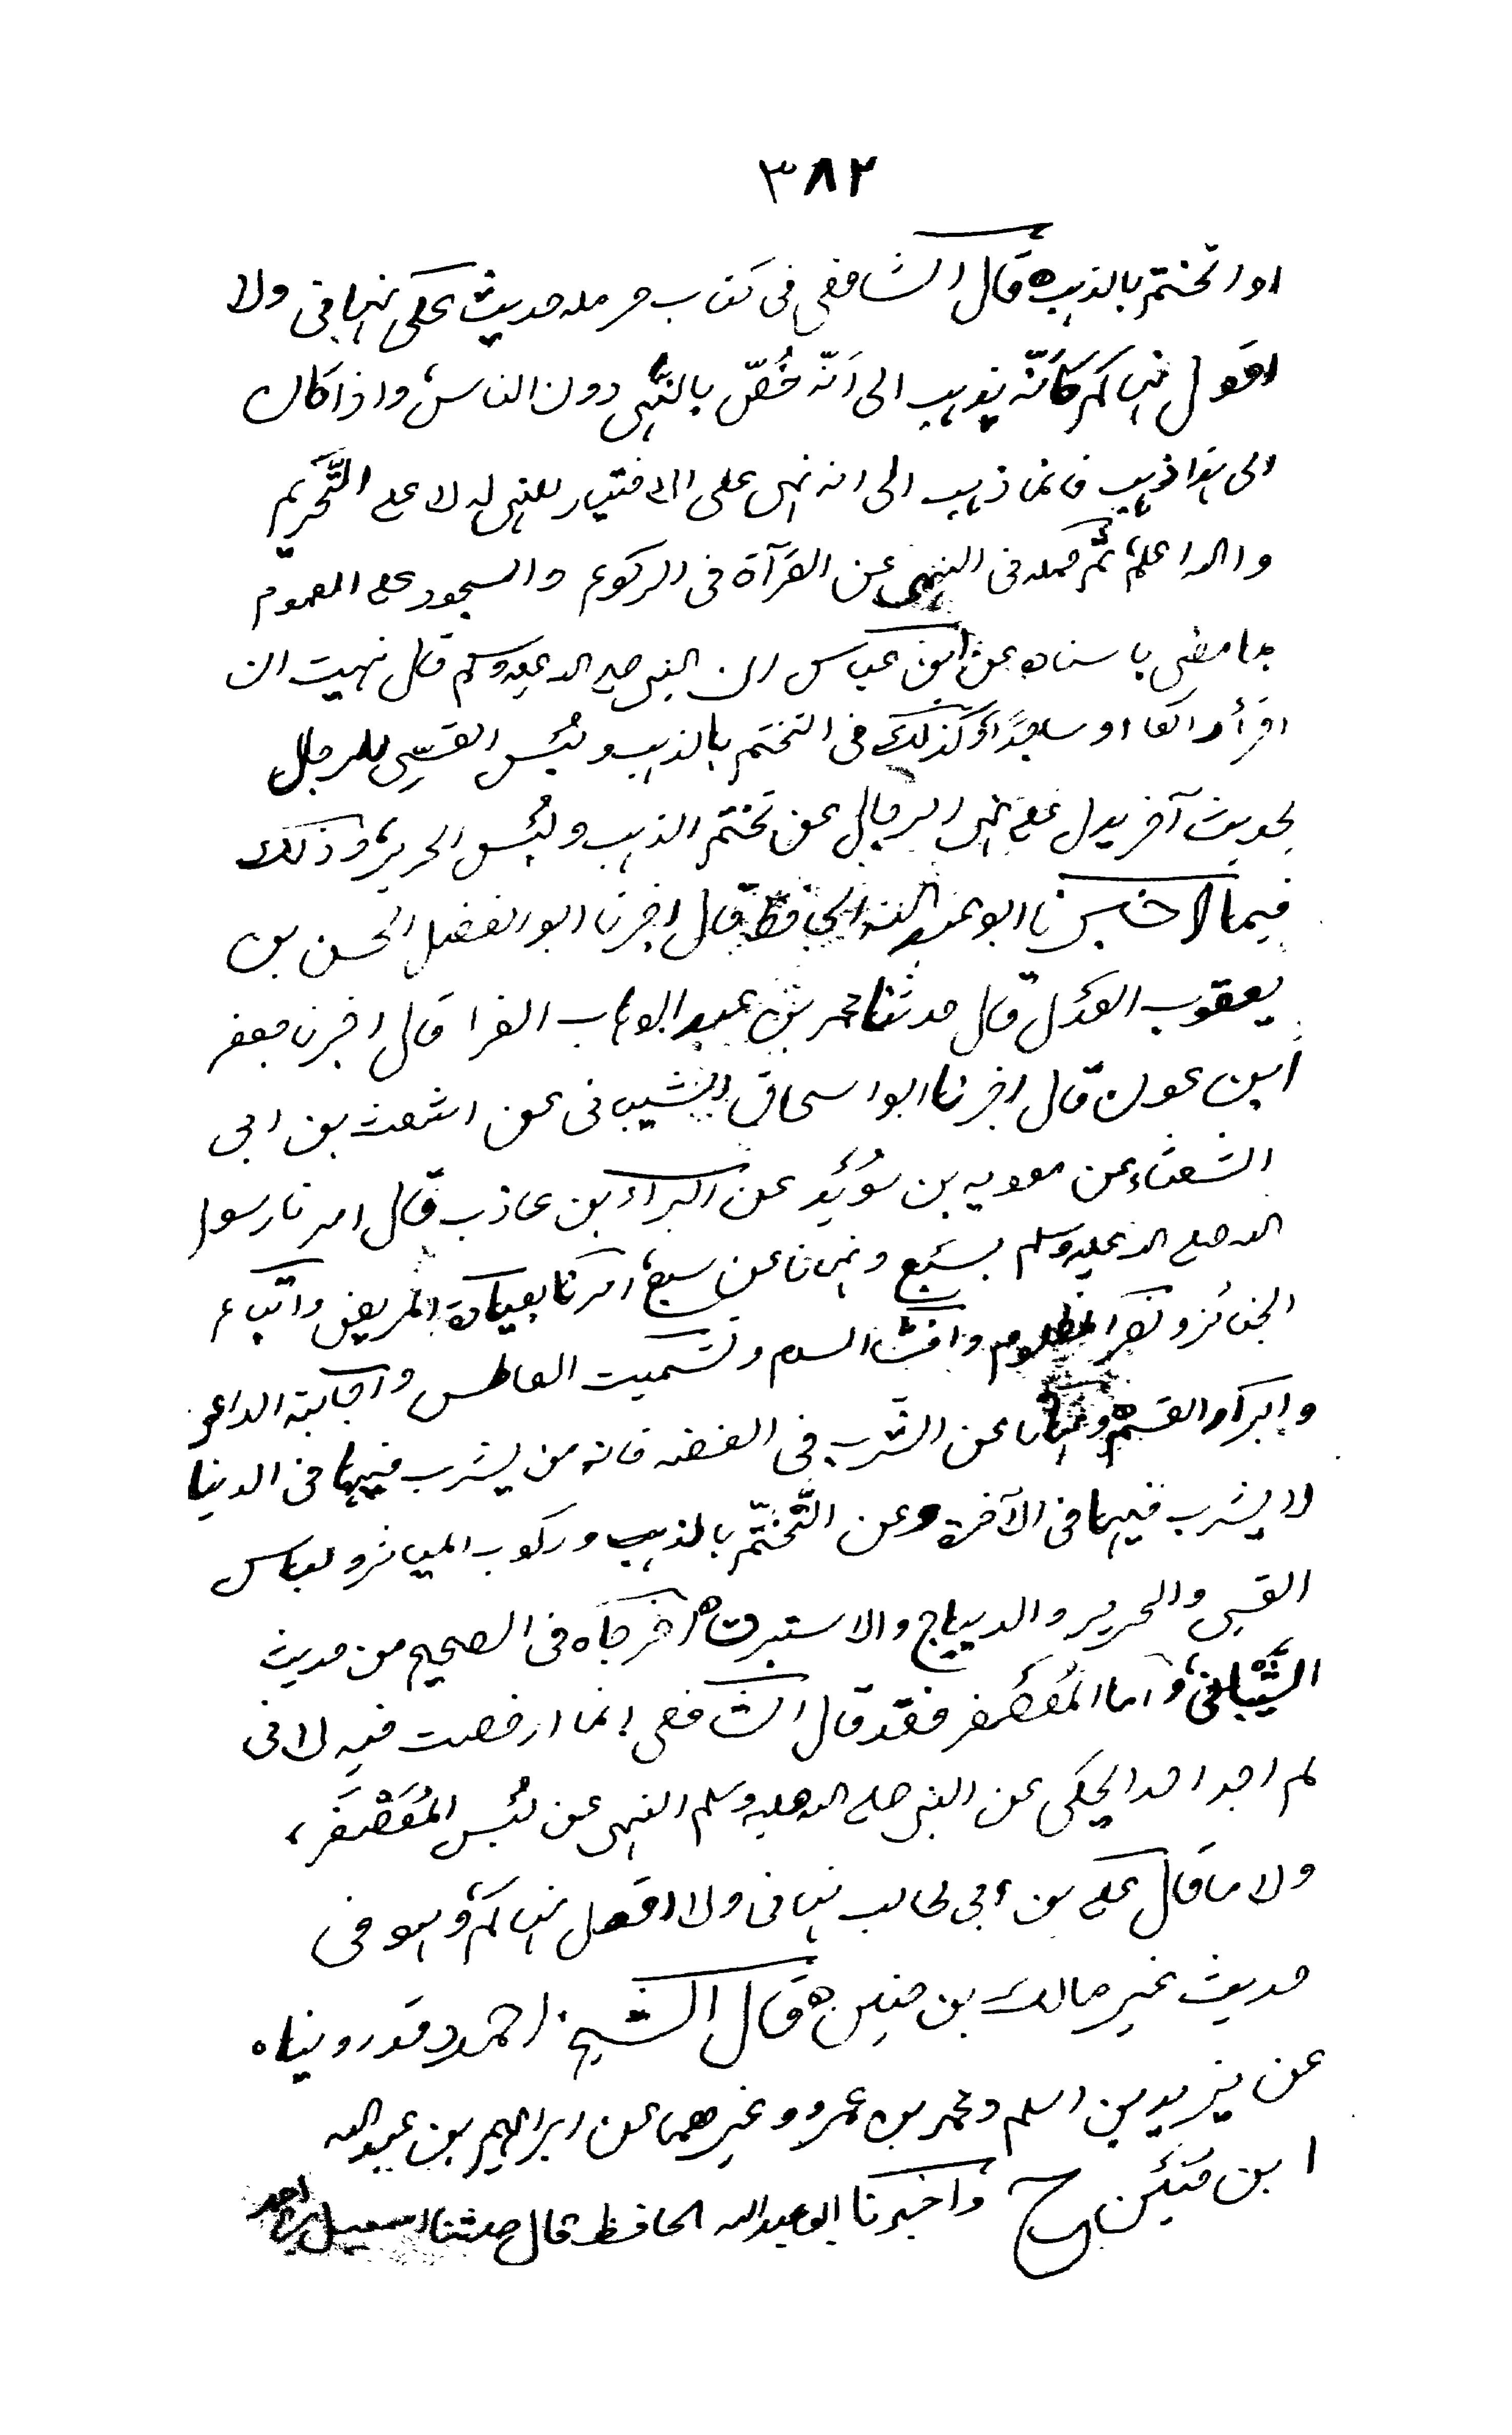 ٣٨٢
او اتختم بالذهب ه قال الشافعي في كتاب حرمله حديث علي نهاني ولا
اقول نهاكم كانّه يذهب الى انّه خُصّ بالنهي دون الناس، واذا كان
الى هذا ذهب فانما ذهب الى انه نهى على الاختيار للنهي له لا على التّحريم
والله اعلم، ثُمّ حمله في النهي عن القرآة في الركوع والسجود على العموم
بما مضى باسناده عن ابن عباس ان النبي صلى الله عليه وسلم قال نهيت ان
اقرأ راكعا او ساجدًا، وكذلك في التختم بالذهب ولُبس القسّي للرجال
بحديث آخر يدل على نهي الرجال عن تختم الذهب ولُبس الحرير، وذلك
فيما اخبرنا ابو عبد الله الحافظ قال اخبرنا ابو الفضل الحسن بن
يعقوب العدل قال حدثنا محمد بن عبد الوهاب الفرا قال اخبرنا جعفر
ابن عون قال اخبرنا ابو اسحاق الشيباني عن اشعث بن ابي
الشعثاء عن معويه بن سُوَيد عن البراء بن عاذب قال امرنا رسول
الله صلى الله عليه وسلم بسَبع ونهانا عن سبع، امرنا بعيادة المريض واتّباع
الجنائز ونصر المظلوم وافشا السلام وتشميت العاطس واجابة الداعي
وابرار القسم ه ونهانا عن الشّرب في الفضه فانه من يشرب فيها في الدنيا
لا يشرب فيها في الآخرة وعن التّختّم بالذهب وركوب المياثر ولباس
القسي والحرير والديباج والاستبرق ه اخرجاه في الصحيح من حديث
الشَّيْبانى، واما المُعَصفر فقد قال الشافعي انما ارخصت فيه لاني
لم اجد احدا يحكى عن النبي صلى الله عليه وسلم النهي عن لُبس المُعَصْفَر،
ولا ما قال علي بن ابي طالب نهاني ولا اقول نهاكم، وهو في
حديث غير مالك بن حنين ه قال الشيخ احمد وقد رويناه
عن يزيد بن اسلم ومحمد بن عمرو وغيرهما عن ابراهيم بن عبد الله
ابن حُنَين ح واخبرنا ابو عبد الله الحافظ قال حدثنا اسمعيل بن احمد